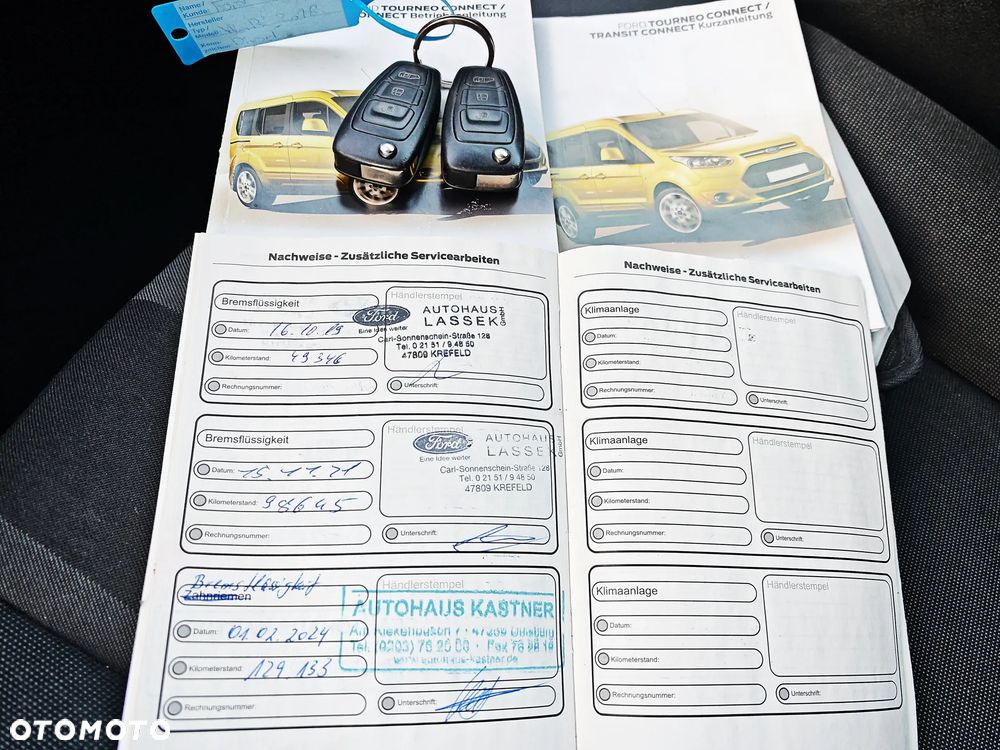 Name /
Kunde:
Hersteller
Typ /
Modell
Kenn-
zeichen
FORD TOURNEO CONNECT /
CONNECT Betriebsanleitung
FORD TOURNEO CONNECT /
TRANSIT CONNECT Kurzanleitung
Nachweise - Zusätzliche Servicearbeiten
Bremsflüssigkeit
Datum: 16.10.19
Kilometerstand: 49346
Rechnungsnummer:
Händlerstempel
Ford
Eine Idee weiter
AUTOHAUS
LASSEK GmbH
Carl-Sonnenschein-Straße 128
Tel. 0 21 51 / 9 48 50
47809 KREFELD
Unterschrift:
Bremsflüssigkeit
Datum: 15.11.21
Kilometerstand: 98645
Rechnungsnummer:
Händlerstempel
Ford
Eine Idee weiter
AUTOHAUS
LASSEK GmbH
Carl-Sonnenschein-Straße 128
Tel. 0 21 51 / 9 48 50
47809 KREFELD
Unterschrift:
Bremsflüssigkeit
Zahnriemen
Datum: 01.02.2024
Kilometerstand: 129 133
Rechnungsnummer:
Händlerstempel
AUTOHAUS KASTNER
Tel. (0203) 76 26 00 · Fax
www.autohaus-kastner.de
Unterschrift:
Nachweise - Zusätzliche Servicearbeiten
Klimaanlage
Datum:
Kilometerstand:
Rechnungsnummer:
Händlerstempel
Unterschrift:
Klimaanlage
Datum:
Kilometerstand:
Rechnungsnummer:
Händlerstempel
Unterschrift:
Klimaanlage
Datum:
Kilometerstand:
Rechnungsnummer:
Händlerstempel
Unterschrift:
OTOMOTO